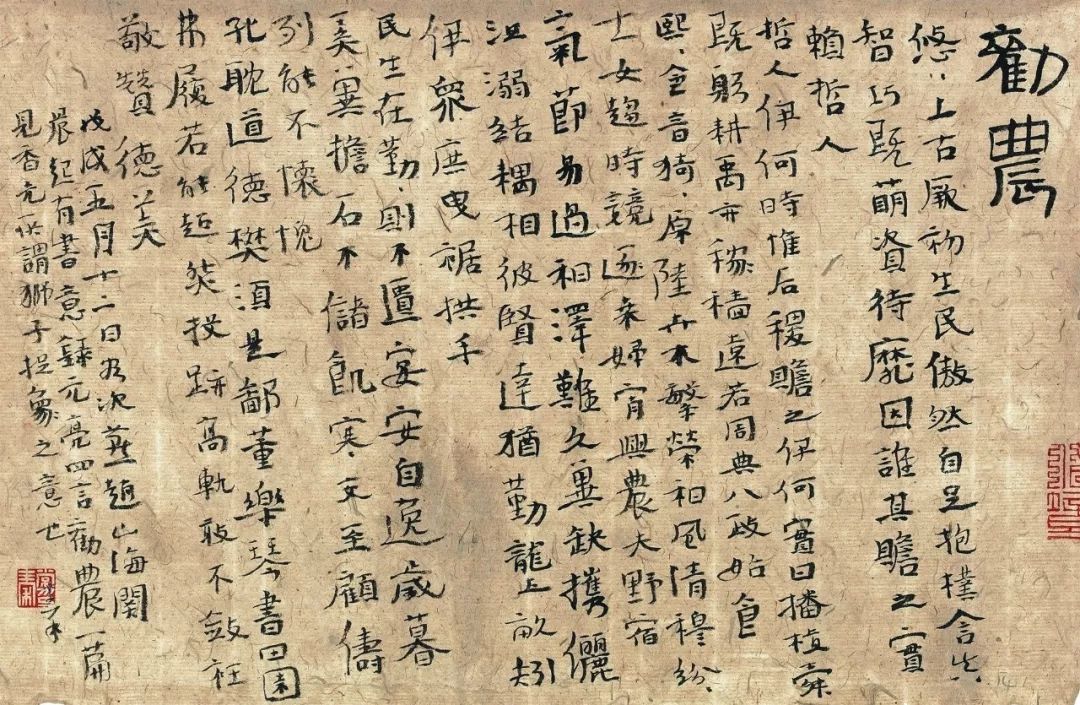 勸農
悠〻上古厥初生民傲然自足抱樸含真
智巧既萌資待靡因誰其贍之實
賴哲人
哲人伊何時惟后稷贍之伊何實曰播植舜
既躬耕禹亦稼穡遠若周典八政始食
熙〻令音猗〻原陸卉木繁榮和風清穆紛〻
士女趨時競逐桑婦宵興農夫野宿
氣節易過和澤難久冀缺攜儷
沮溺結耦相彼賢達猶勤龍上畝矧
伊眾庶曳裾拱手
民生在勤〻則不匱宴安自逸歲暮
奚冀擔石不儲飢寒交至顧儔
列能不懷愧
孔耽道德樊須是鄙董樂琴書田園
弗履若能超然投跡高軌敢不斂衽
敬贊德美
戊戌五月十二日次燕趙山海關
晨起有書意錄元亮四言勸農一篇
見香光所謂獅子捉象之意也